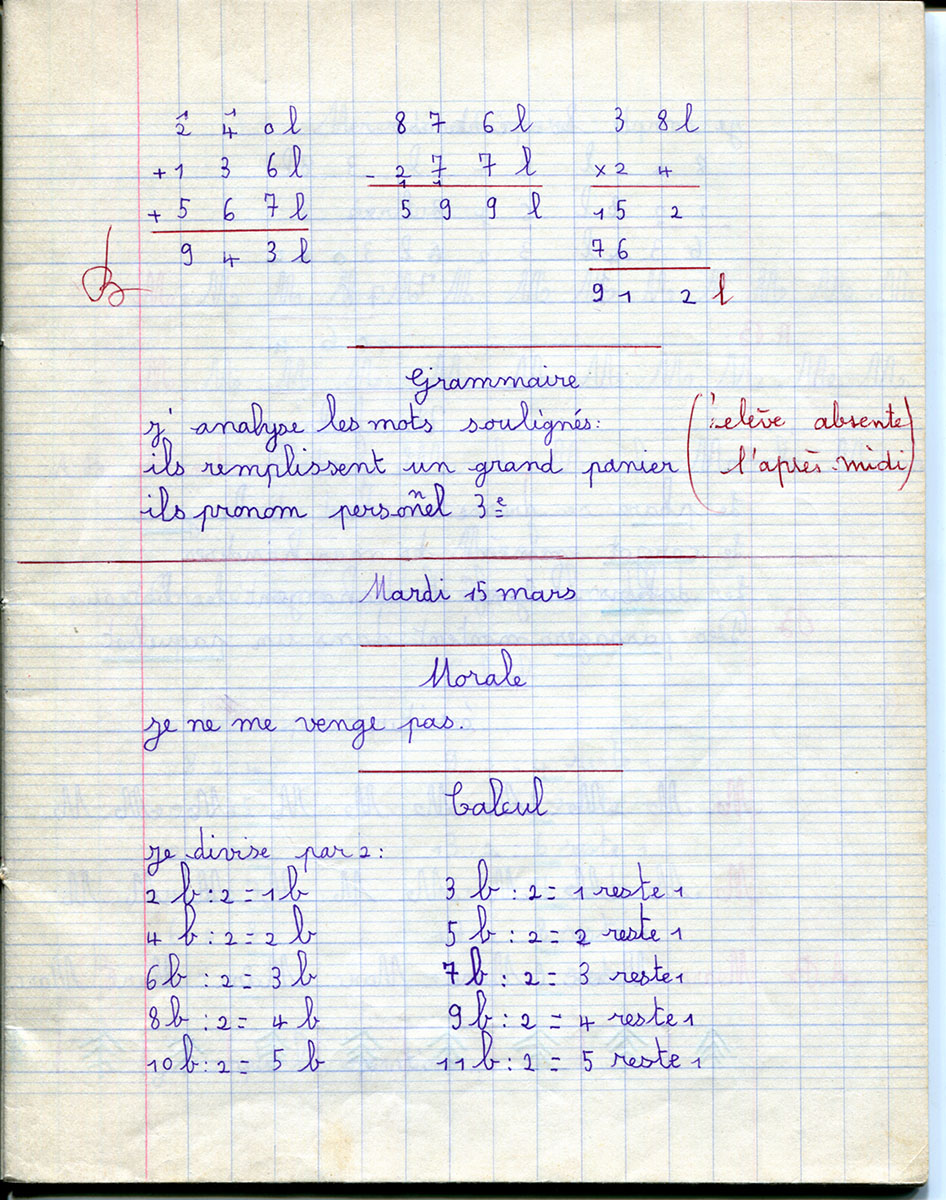 1 1
2 4 0 l
+ 1 3 6 l
+ 5 6 7 l
9 4 3 l
B
8 7 6 l
- 2 7 7 l
1 1
5 9 9 l
3 8 l
× 2 4
1 5 2
7 6
9 1 2 l
Grammaire
j' analyse les mots soulignés:
ils remplissent un grand panier
ils pronom personnel 3e
(: elève absente
l'après-midi)
Mardi 15 mars
Morale
je ne me venge pas.
Calcul
je divise par 2:
2 b : 2 = 1 b 3 b : 2 = 1 reste 1
4 b : 2 = 2 b 5 b : 2 = 2 reste 1
6 b : 2 = 3 b 7 b : 2 = 3 reste 1
8 b : 2 = 4 b 9 b : 2 = 4 reste 1
10 b : 2 = 5 b 11 b : 2 = 5 reste 1